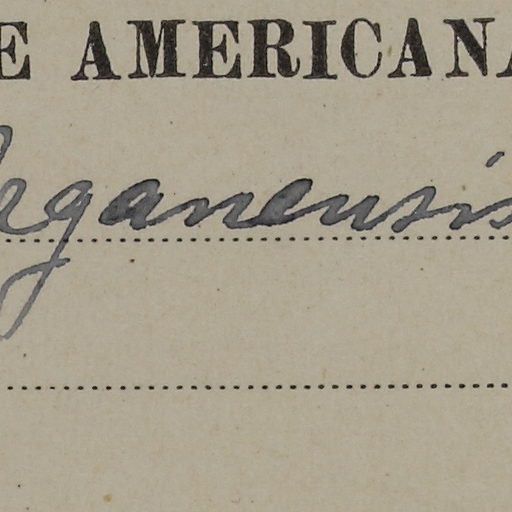 E AMERICANA
organensis